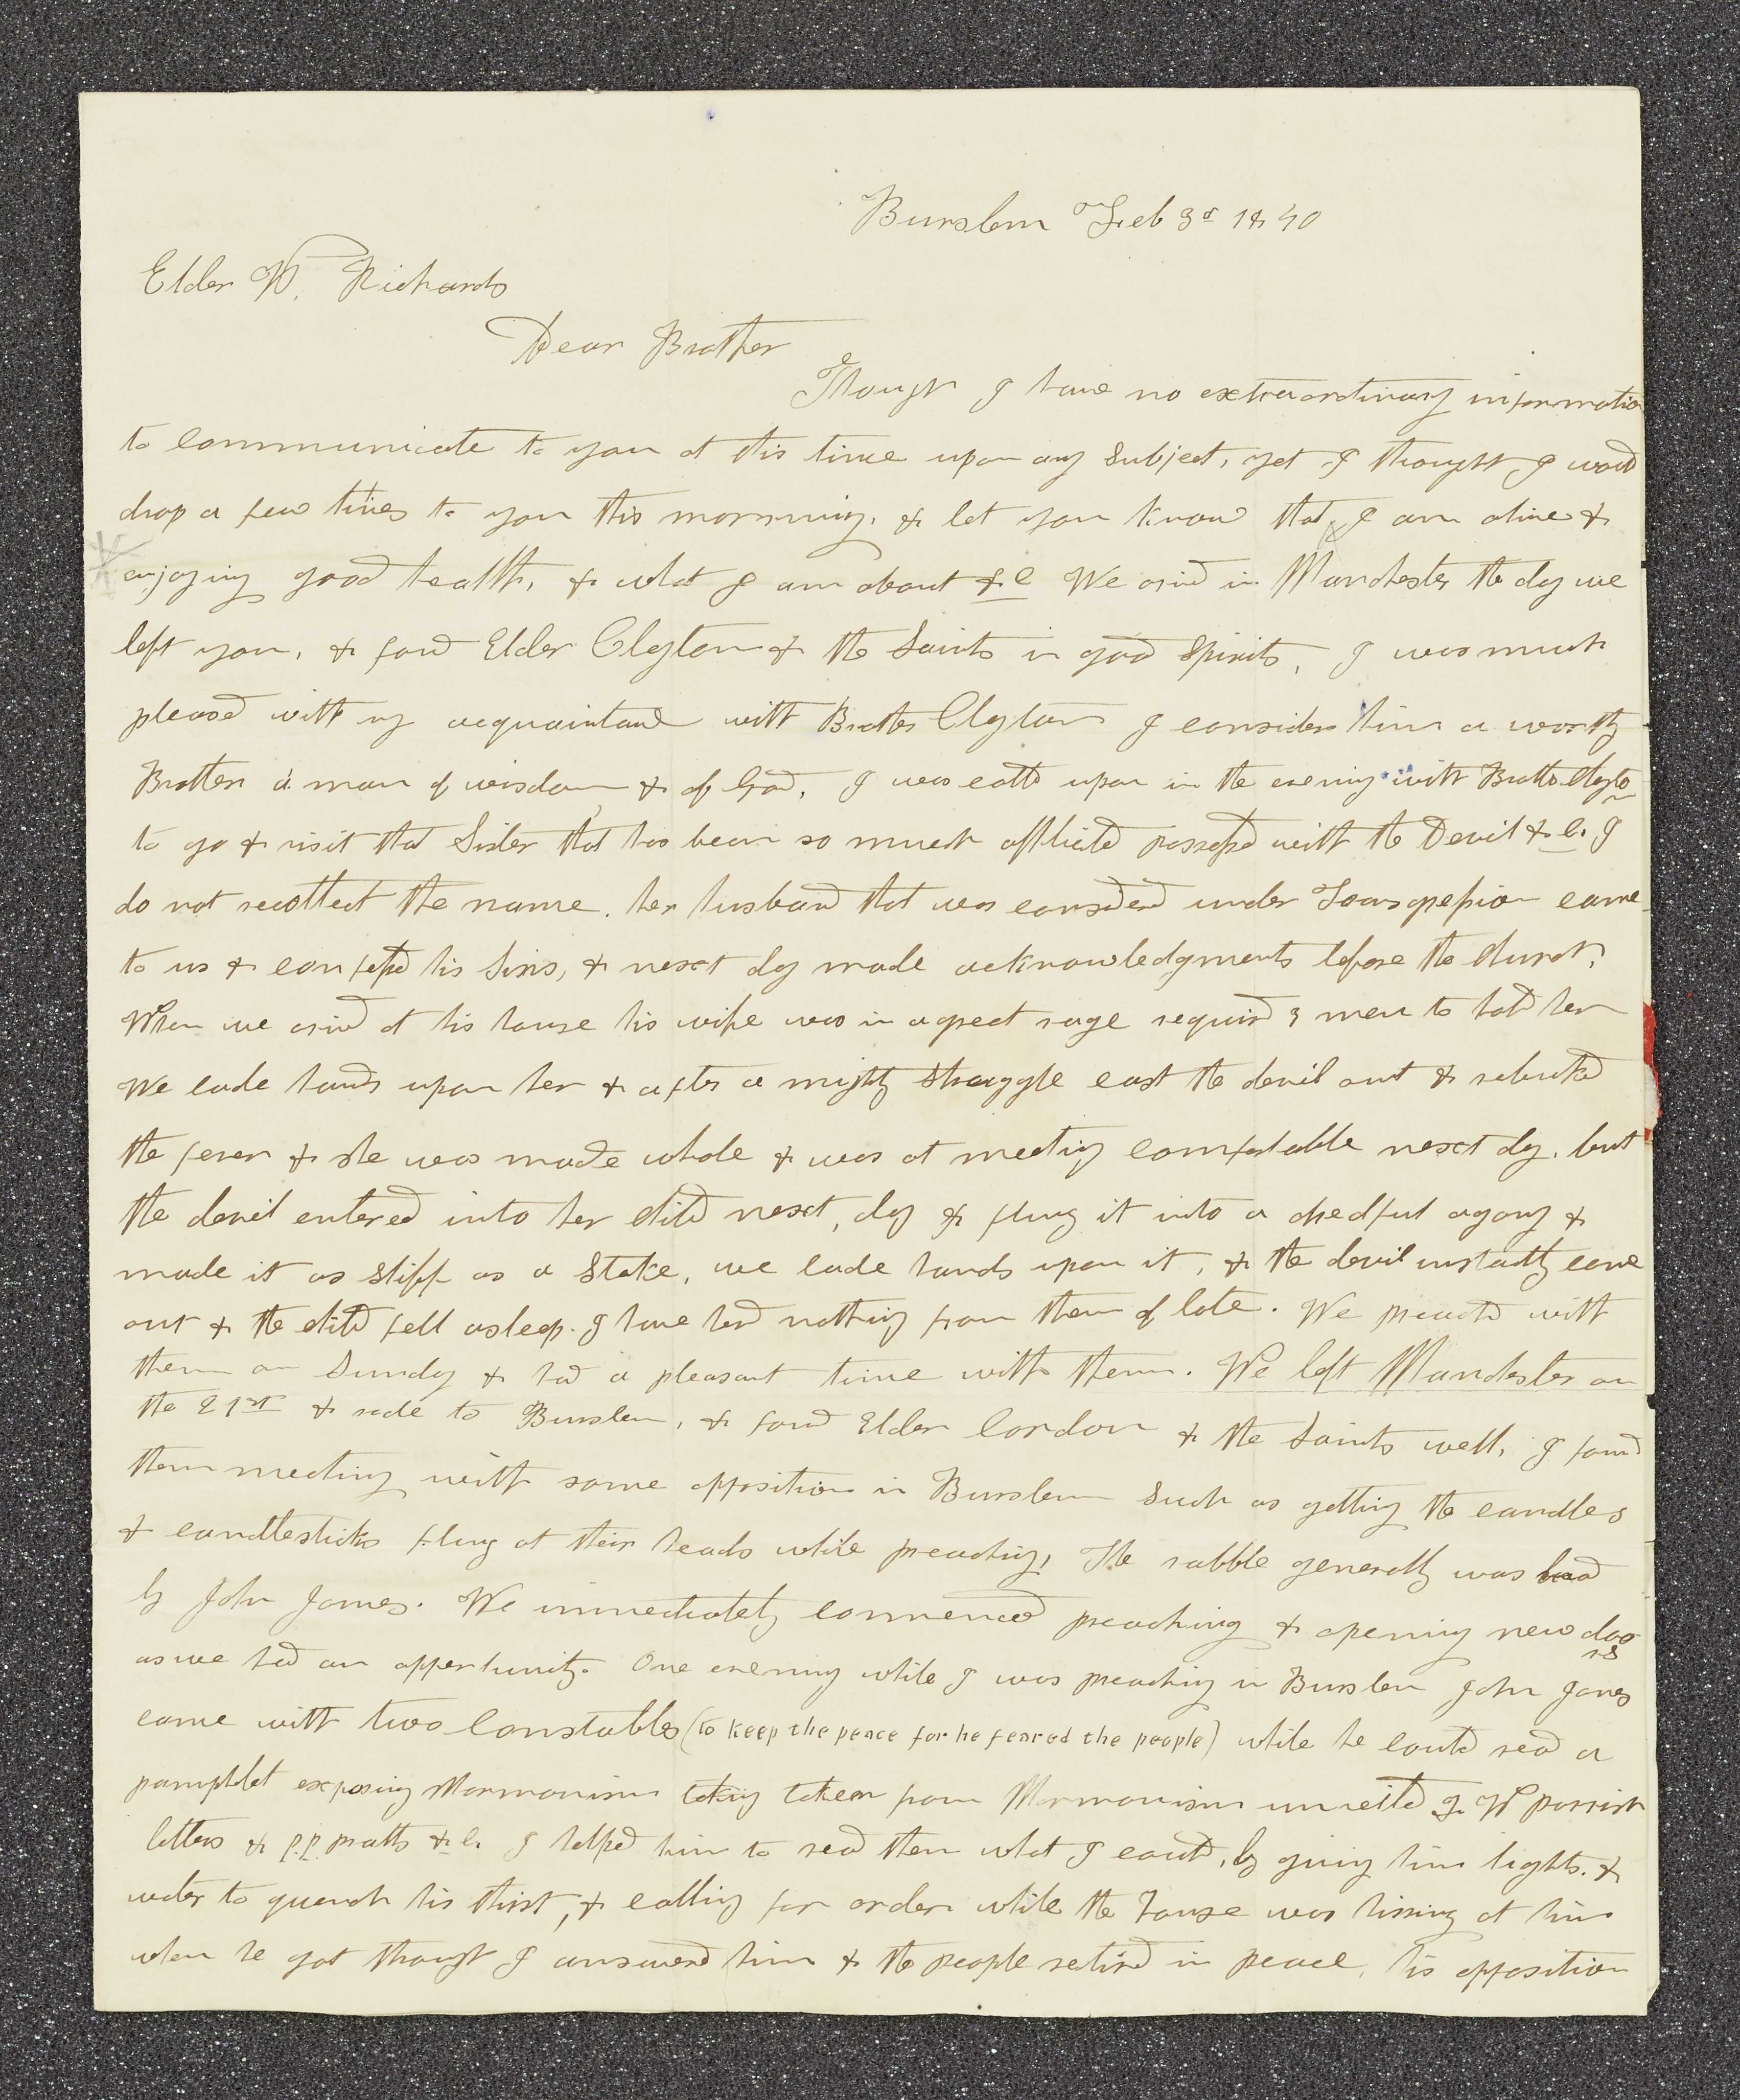 Burslem Feb 3d 1840
Elder W. Richards
Dear Brother
Though I have no extraordinary informatio
to communicate to you at this time upon any Subject, yet I thought I would
drop a few lines to you this mornning, & let you know that I am alive &
enjoying good health, & what I am about &c We arivd in Manchester the day we
left you, & found Elder Clayton & the Saints in good Spirits, I was much
pleased with my acquaintance with Brother Clayton I consider him a worthy
Brother a man of wisdom & of God, I was calld upon in the evening with Brother Clayto
n
to go & visit that Sister that has been so much afflictd possessd with the Devil &c. I
do not recollect the name. her husband that was considerd under Transgression came
to us & confessd his Sins, & next day made acknowledgments before the Church,
When we arivd at his house his wife was in a great rage requird 3 men to hold her
We lade hands upon her & after a mighty Struggle cast the devil out & rebukd
the fever & she was made whole & was at meeting comfortable next day. but
the devil entered into her child next, day & flung it into a dredful agony &
made it as stiff as a Stake, we lade hands upon it, & the devil instantly came
out & the child fell asleep. I have herd nothing from them of late. We preachd with
them on Sunday & had a pleasant time with them. We left Manchester on
the 21st & rode to Burslem, & found Elder Cordon & the Saints well, I found
them meeting with some opposition in Burslem Such as getting the candles
& candlesticks flung at their heads while preaching, The rabble generally was head
by John Jones. We immediately commenced preaching & opening new doo
rs
as we had an oppertunity. One evening while I was preaching in Burslem John Jones
came with two Constables (to keep the peace for he feared the people) while he could read a
pamphlet exposing Mormonism taking taken from Mormonism unveild G. W parrish
letters & P.P. pratts &c. I helped him to read them what I could, by giving him lights. &
water to quench his thirst, & calling for order while the House was hissing at him
when he got though I answered him & the people retird in peace, his opposition